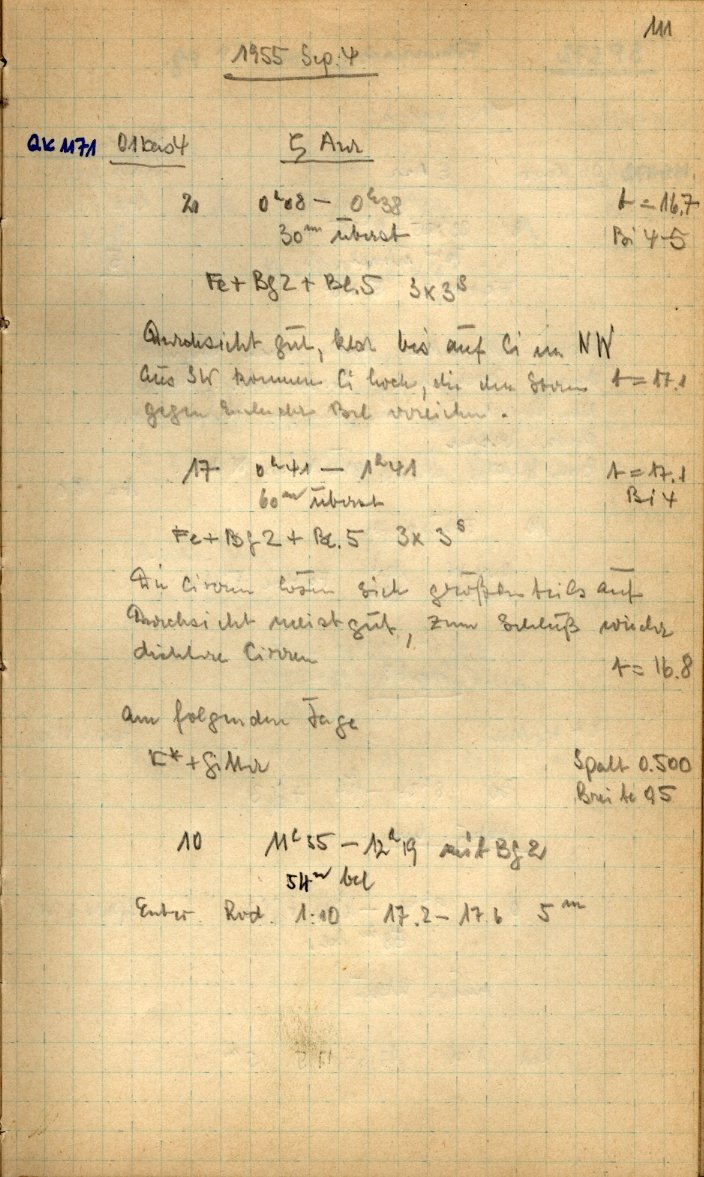 111
1955 Sep. 4
QK 1171 01 Kas 4 ζ Aur
20 0ʰ08 – 0ʰ38 t = 16,7
30ᵐ überst Bi 4-5
Fe + Bg 2 + Bl. 5 3x3ˢ
Durchsicht gut, klar bis auf Ci im NW
Aus SW kommen Ci hoch, die den Stern t = 17.1
gegen Ende der Bel erreichen.
17 0ʰ41 – 1ʰ41 t = 17.1
60ᵐ überst Bi 4
Fe + Bg 2 + Bl. 5 3x 3ˢ
Die Cirren lösen sich größtenteils auf
Durchsicht meist gut, zum Schluß wieder
dichtere Cirren t = 16.8
am folgenden Tage
K* + Gitter Spalt 0.500
Breite 0.5
10 11ʰ35 – 12ʰ19 mit Bg 2
54ᵐ bel
Entw. Rod. 1:10 17.2 – 17.6 5ᵐ